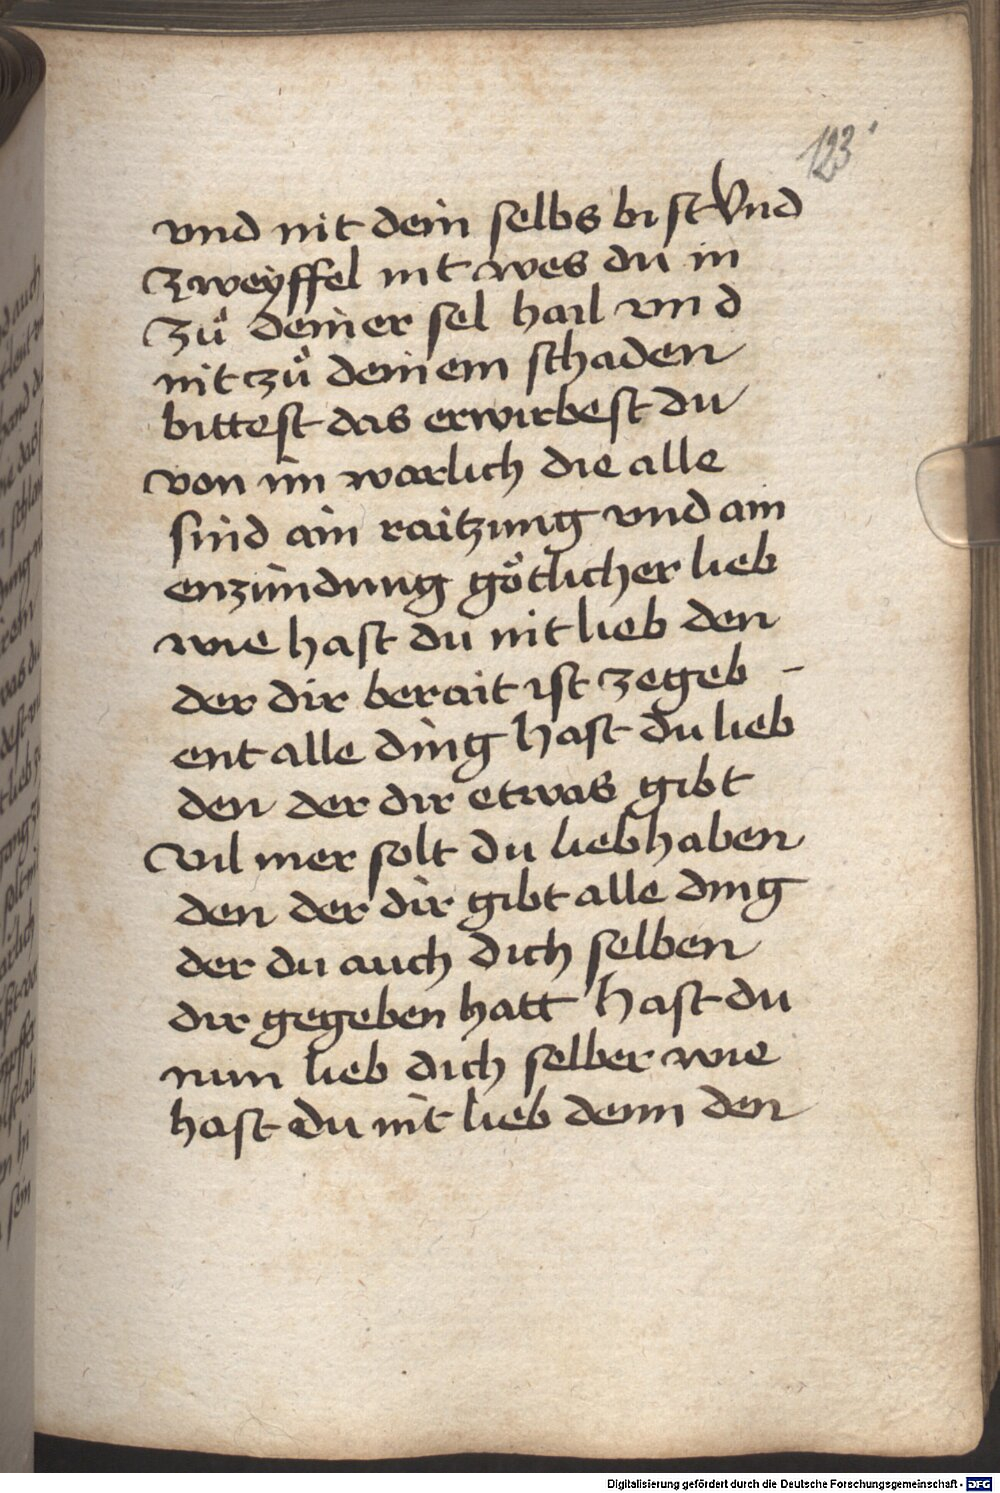 123
vnd nit dein selbs bist Vnd
zweyffel nit wes du in
zuͦ deiner sel hail vnd
nit zuͦ deinem schaden
bittest das erwirbest du
von im warlich die alle
sind ain raitzung vnd ain
enzundung götlicher lieb
wie hast du nit lieb den
der dir berait ist zegeb -
ent alle ding hast du lieb
den der dir etwas gibt
Vil mer solt du lieb haben
den der dir gibt alle ding
der du auch dich selben
dir gegeben hatt hast du
nun lieb dich selber wie
hast du nit lieb denn den
Digitalisierung gefördert durch die Deutsche Forschungsgemeinschaft - DFG